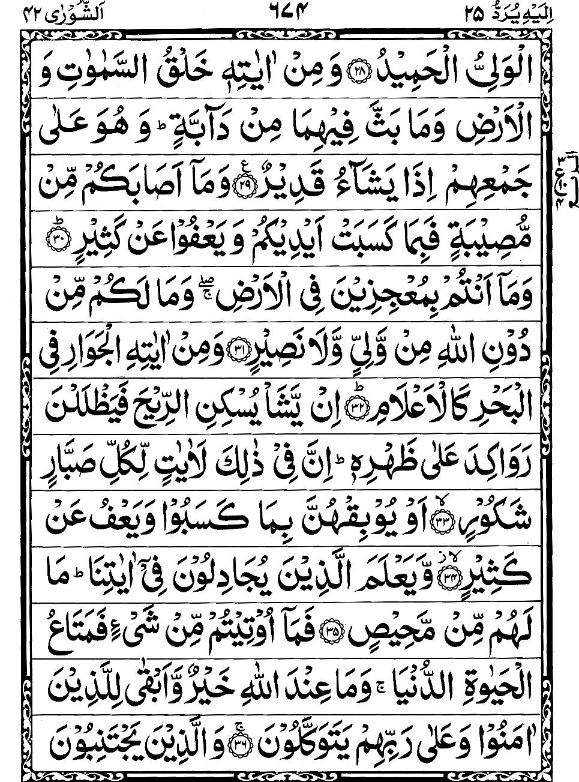 الشورٰی ۴۲ ۶۷۴ الیه یردّ ۲۵
الْوَلِيُّ الْحَمِيْدُ ﴿۲۸﴾ وَ مِنْ اٰيٰتِهٖ خَلْقُ السَّمٰوٰتِ وَ
الْاَرْضِ وَمَا بَثَّ فِيْهِمَا مِنْ دَآبَّةٍ ؕ وَ هُوَ عَلٰى
جَمْعِهِمْ اِذَا يَشَآءُ قَدِيْرٌ ﴿۲۹﴾ ع وَمَاۤ اَصَابَكُمْ مِّنْ
مُّصِيْبَةٍ فَبِمَا كَسَبَتْ اَيْدِيْكُمْ وَ يَعْفُوْا عَنْ كَثِيْرٍ ﴿۳۰﴾ؕ
وَمَاۤ اَنْتُمْ بِمُعْجِزِيْنَ فِى الْاَرْضِ ۖۚ وَمَا لَكُمْ مِّنْ
دُوْنِ اللّٰهِ مِنْ وَّلِيٍّ وَّلَا نَصِيْرٍ ﴿۳۱﴾ وَمِنْ اٰيٰتِهِ الْجَوَارِ فِى
الْبَحْرِ كَالْاَعْلَامِ ﴿۳۲﴾ؕ اِنْ يَّشَاْ يُسْكِنِ الرِّيْحَ فَيَظْلَلْنَ
رَوَاكِدَ عَلٰى ظَهْرِهٖ ؕ اِنَّ فِىْ ذٰلِكَ لَاٰيٰتٍ لِّكُلِّ صَبَّارٍ
شَكُوْرٍ ﴿۳۳﴾ۙ اَوْ يُوْبِقْهُنَّ بِمَا كَسَبُوْا وَيَعْفُ عَنْ
كَثِيْرٍ ﴿۳۴﴾ وَّيَعْلَمَ الَّذِيْنَ يُجَادِلُوْنَ فِىْۤ اٰيٰتِنَا ؕ مَا
لَهُمْ مِّنْ مَّحِيْصٍ ﴿۳۵﴾ فَمَاۤ اُوْتِيْتُمْ مِّنْ شَىْءٍ فَمَتَاعُ
الْحَيٰوةِ الدُّنْيَا ۚ وَمَا عِنْدَ اللّٰهِ خَيْرٌ وَّاَبْقٰى لِلَّذِيْنَ
اٰمَنُوْا وَعَلٰى رَبِّهِمْ يَتَوَكَّلُوْنَ ﴿۳۶﴾ۚ وَالَّذِيْنَ يَجْتَنِبُوْنَ